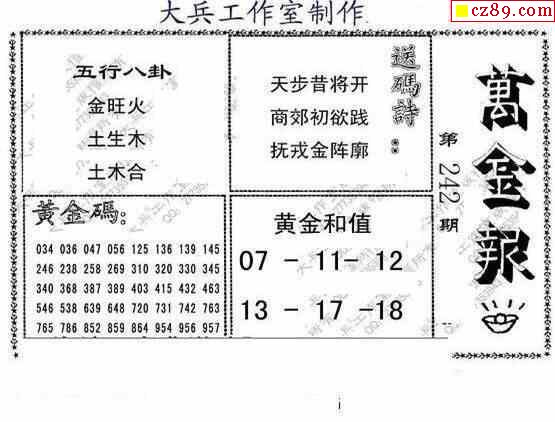 大兵工作室制作
cz89.com
五行八卦
金旺火
土生木
土木合
送碼詩：
天步昔将开
商郊初欲践
抚戎金阵廓
第242期
萬金報
黃金碼:
034 036 047 056 125 136 139 145
246 238 258 269 310 320 330 345
340 368 387 389 403 415 432 463
546 538 639 648 720 731 742 763
765 786 852 859 864 954 956 957
黄金和值
07 - 11- 12
13 - 17 -18
i